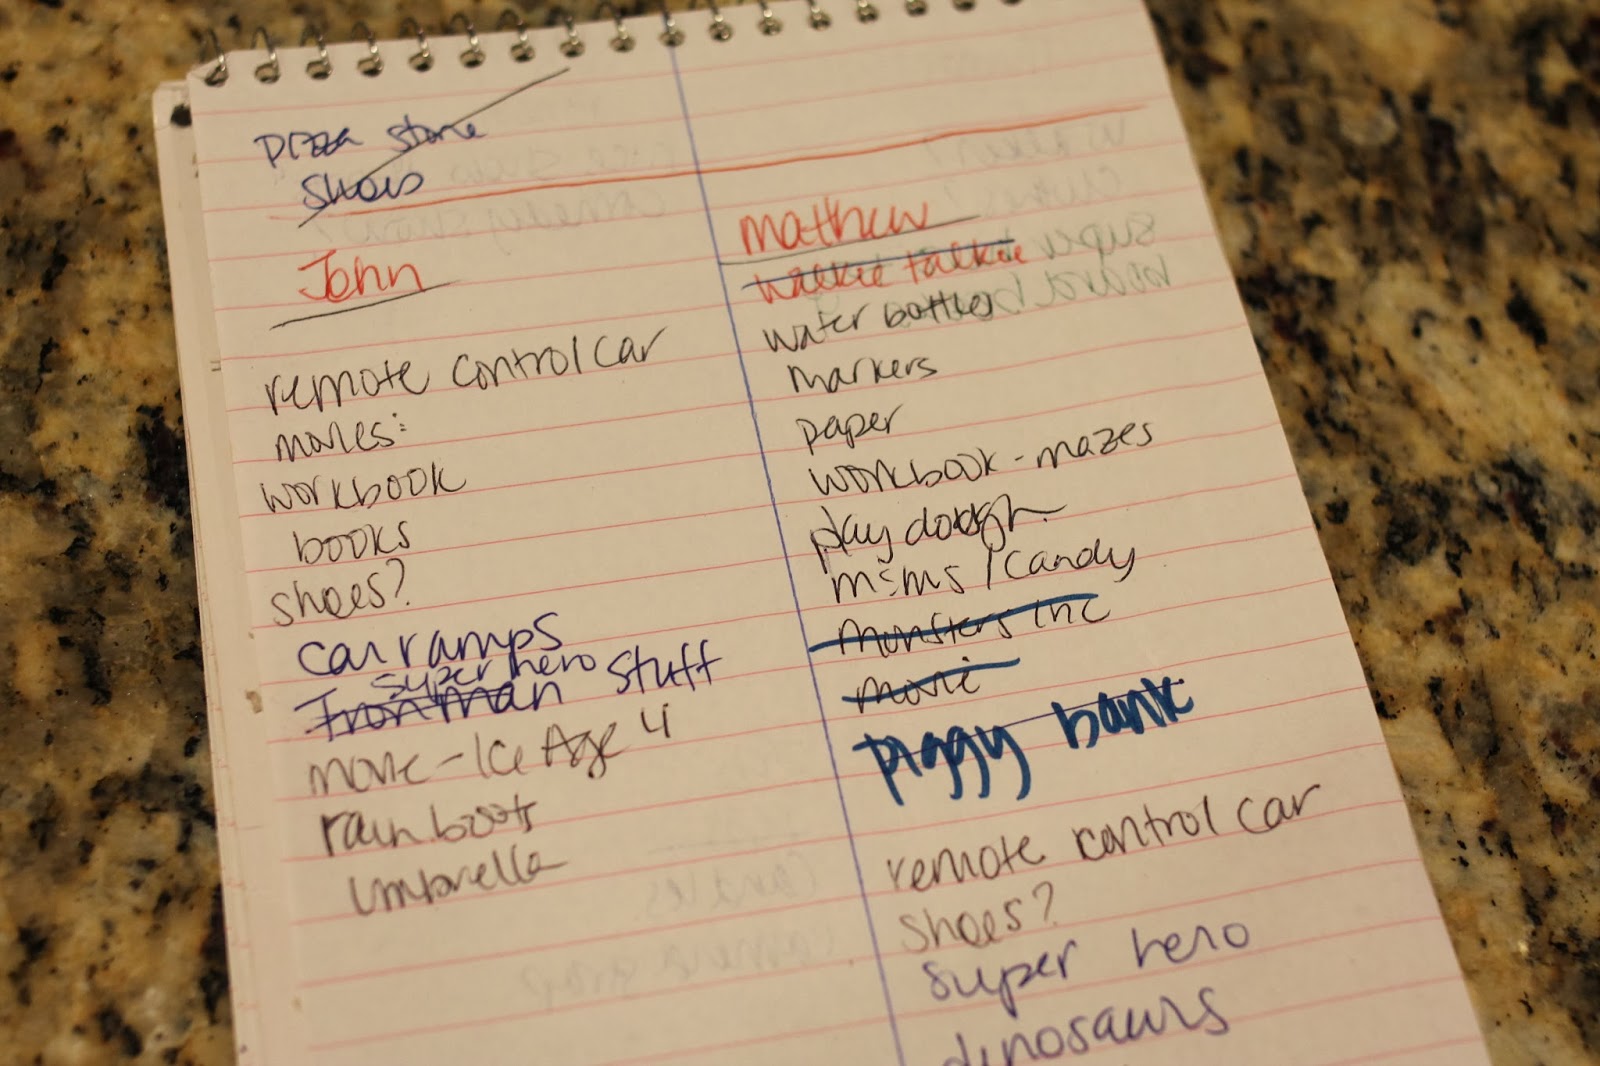 pizza stone
shoes
John
remote control car
movies:
workbook
books
shoes?
car ramps
super hero
Iron man stuff
movie - Ice Age 4
rain boots
umbrella
mathew
walkie talkie
water bottles
markers
paper
workbook - mazes
play dough
m&ms / candy
monsters inc
movie
piggy bank
remote control car
shoes?
super hero
dinosaurs